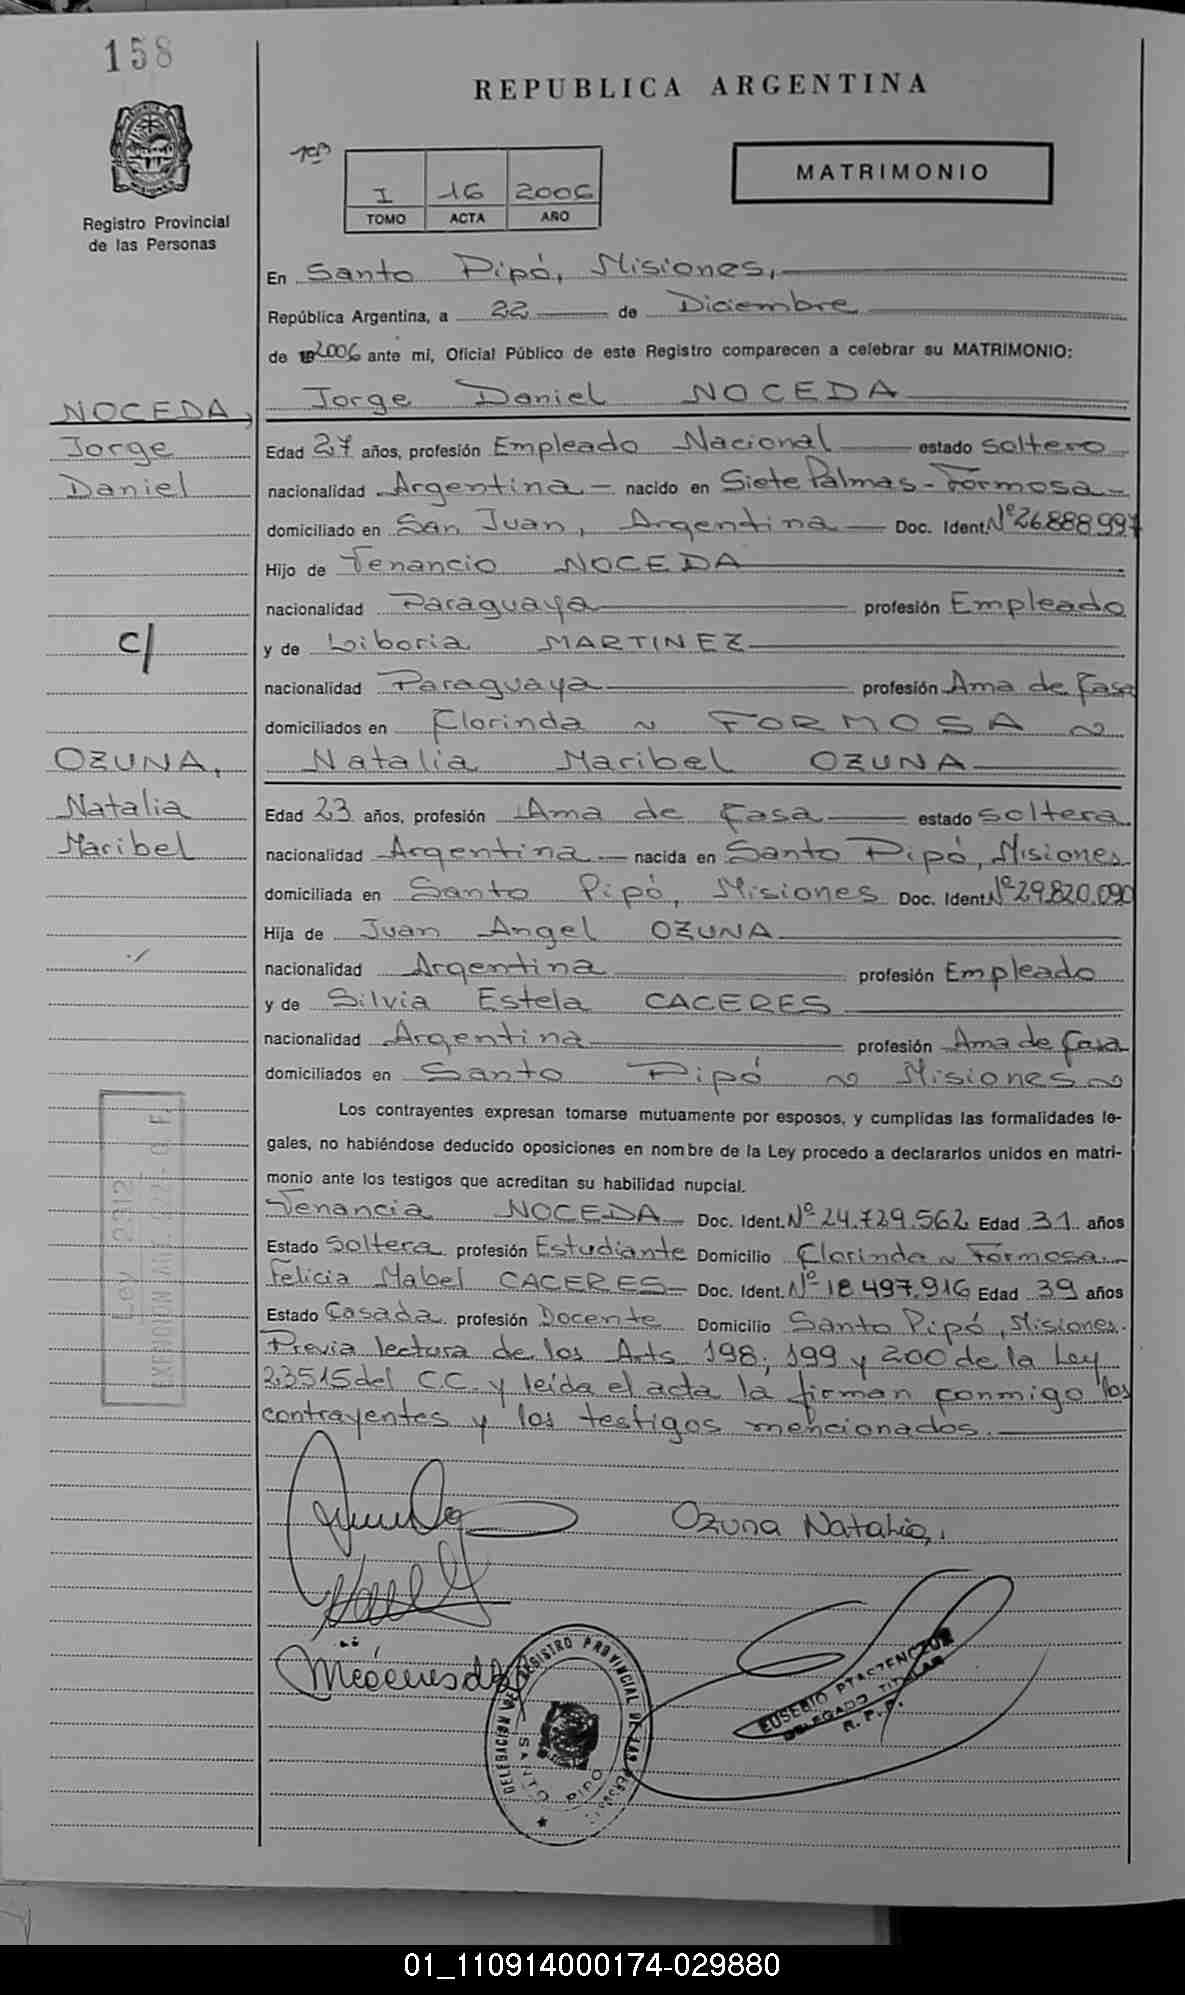 158
REPUBLICA ARGENTINA
I 16 2006
TOMO ACTA AÑO
MATRIMONIO
Registro Provincial
de las Personas
En Santo Pipó, Misiones,
República Argentina, a 22 de Diciembre
de 2006 ante mí, Oficial Público de este Registro comparecen a celebrar su MATRIMONIO:
NOCEDA,
Jorge
Daniel
c/
OZUNA,
Natalia
Maribel
Jorge Daniel NOCEDA
Edad 27 años, profesión Empleado Nacional estado soltero
nacionalidad Argentina - nacido en Siete Palmas - Formosa -
domiciliado en San Juan, Argentina Doc. Ident. Nº 26.888.997
Hijo de Venancio NOCEDA
nacionalidad Paraguaya profesión Empleado
y de Liboria MARTINEZ
nacionalidad Paraguaya profesión Ama de Casa
domiciliados en Clorinda ~ FORMOSA ~
Natalia Maribel OZUNA
Edad 23 años, profesión Ama de Casa estado soltera
nacionalidad Argentina - nacida en Santo Pipó, Misiones
domiciliada en Santo Pipó, Misiones Doc. Ident. Nº 29.820.090
Hija de Juan Angel OZUNA
nacionalidad Argentina profesión Empleado
y de Silvia Estela CACERES
nacionalidad Argentina profesión Ama de Casa
domiciliados en Santo Pipó ~ Misiones ~
Los contrayentes expresan tomarse mutuamente por esposos, y cumplidas las formalidades le-
gales, no habiéndose deducido oposiciones en nombre de la Ley procedo a declararlos unidos en matri-
monio ante los testigos que acreditan su habilidad nupcial.
Venancia NOCEDA Doc. Ident. Nº 24.729.562 Edad 31 años
Estado Soltera profesión Estudiante Domicilio Clorinda ~ Formosa
Felicia Mabel CACERES Doc. Ident. Nº 18.497.916 Edad 39 años
Estado Casada profesión Docente Domicilio Santo Pipó, Misiones.
Previa lectura de los Arts 198, 199 y 200 de la Ley
23515 del C.C. y leída el acta la firman conmigo los
contrayentes y los testigos mencionados.
Ozuna Natalia
DELEGACION DEL REGISTRO PROVINCIAL DE LAS PERSONAS
SANTO PIPO
EUSEBIO PTASZENCZUK
DELEGADO TITULAR
R. P. P.
01_110914000174-029880